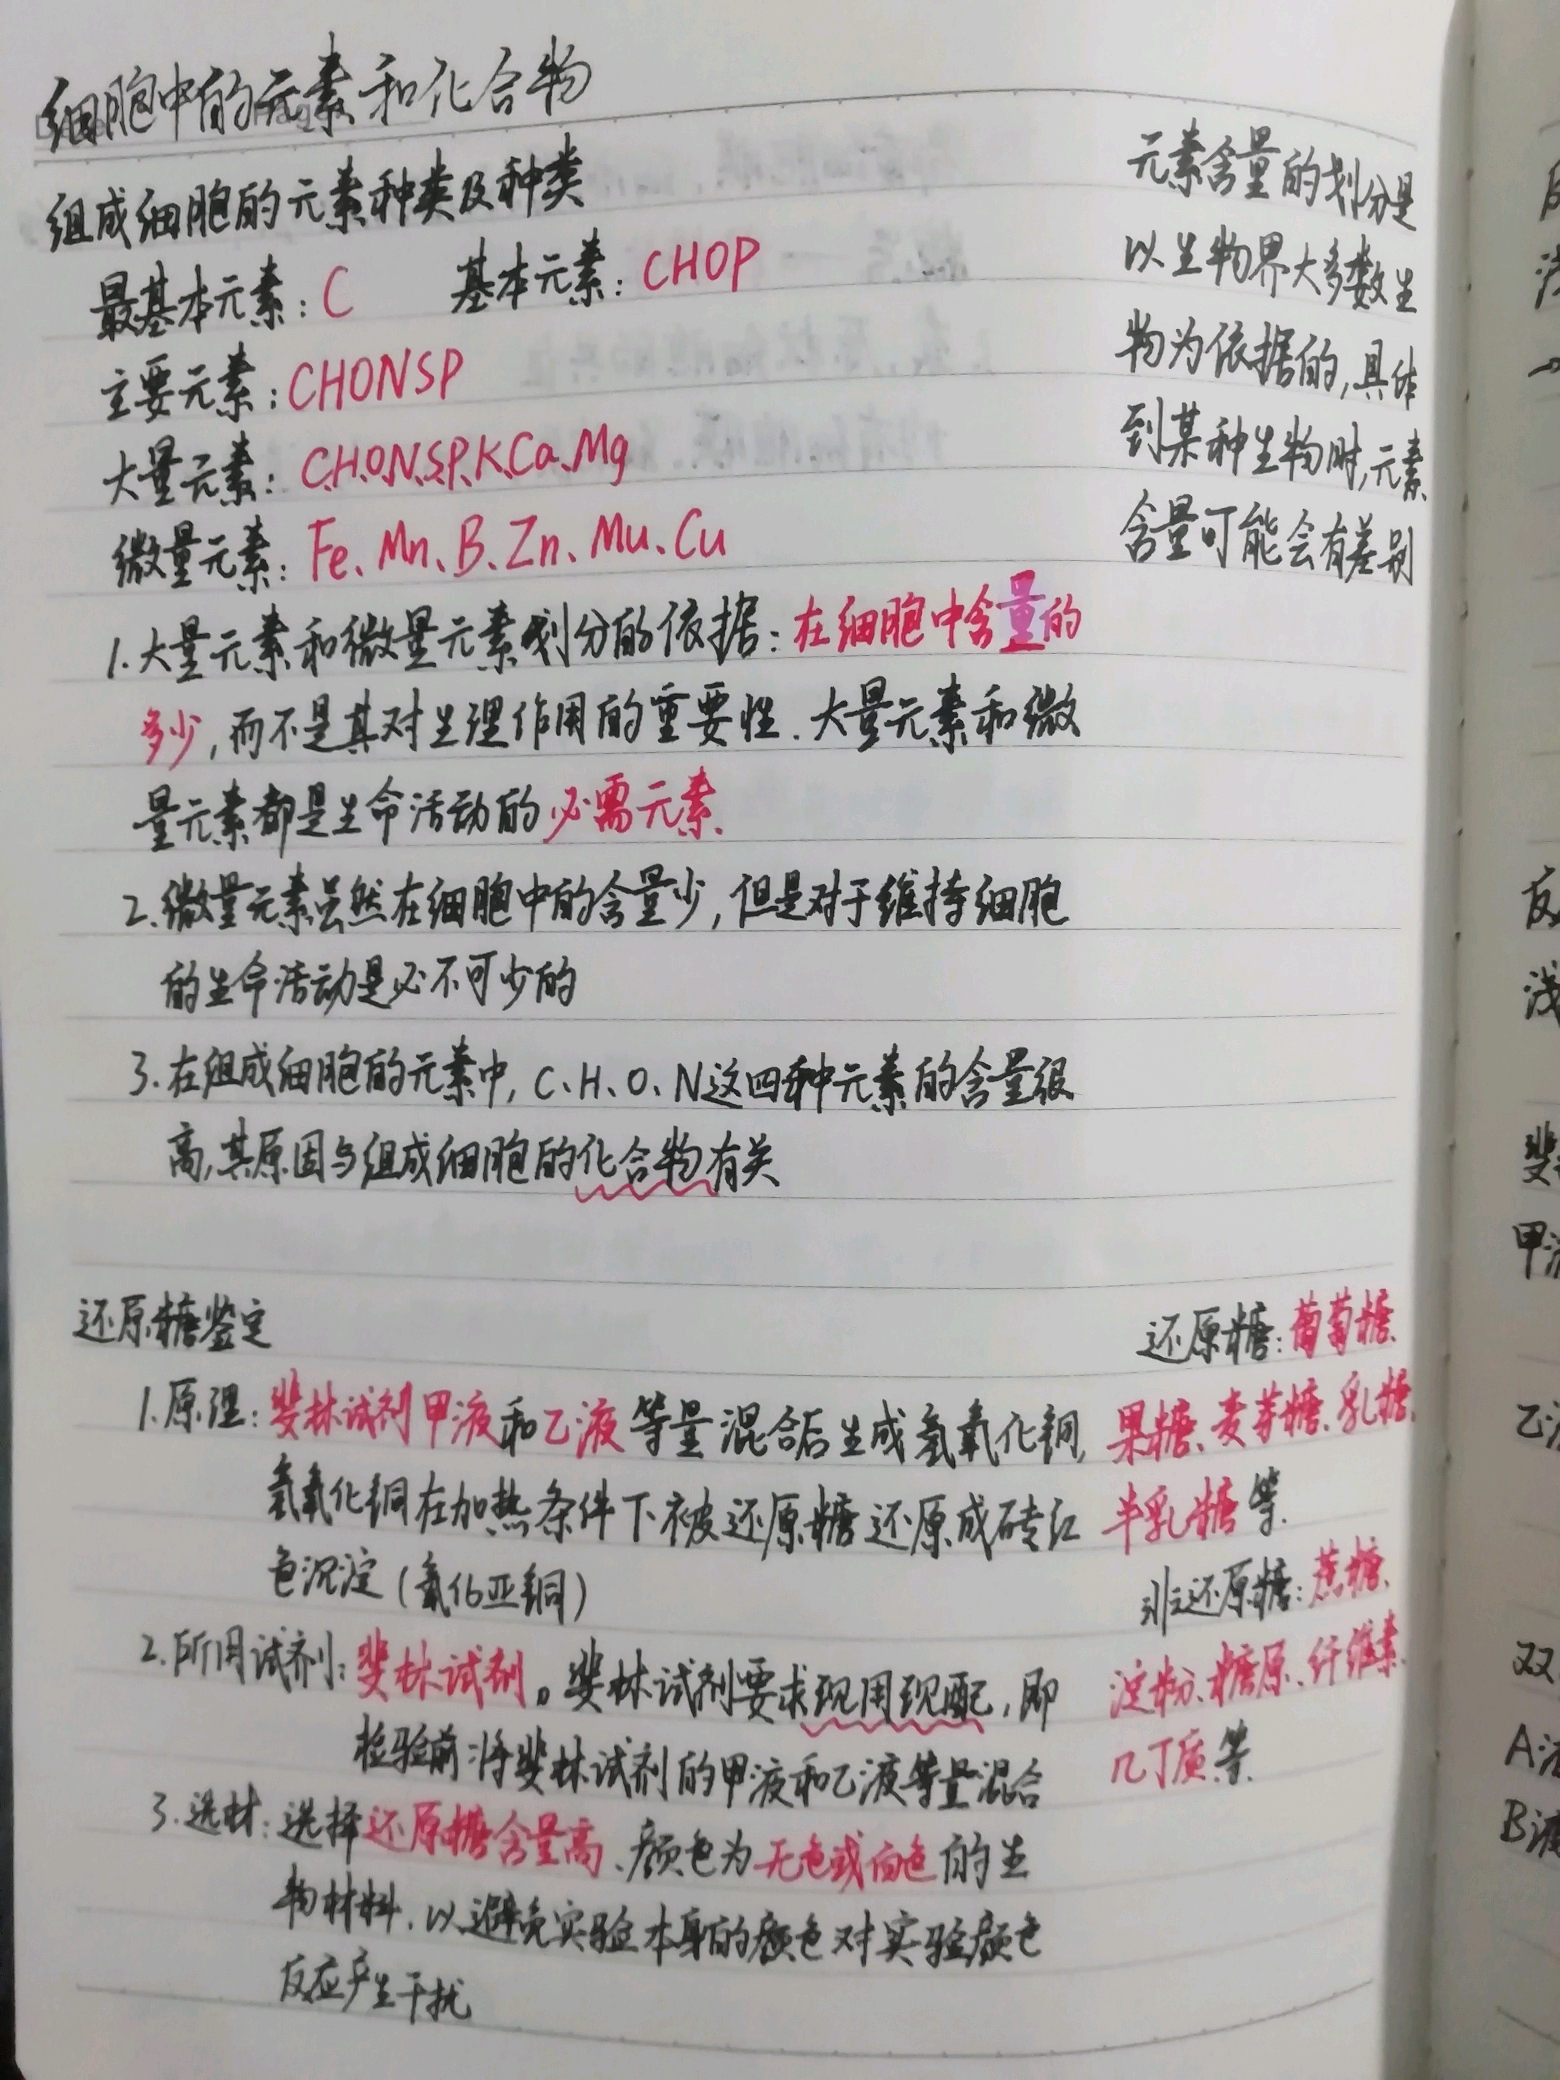 细胞中的元素和化合物
组成细胞的元素种类及种类
最基本元素：C 基本元素：CHOP
主要元素：CHONSP
大量元素：C、H、O、N、S、P、K、Ca、Mg
微量元素：Fe、Mn、B、Zn、Mu、Cu
1.大量元素和微量元素划分的依据：在细胞中含量的
多少，而不是其对生理作用的重要性．大量元素和微
量元素都是生命活动的必需元素．
2.微量元素虽然在细胞中的含量少，但是对于维持细胞
的生命活动是必不可少的
3.在组成细胞的元素中，C、H、O、N这四种元素的含量很
高，其原因与组成细胞的化合物有关
元素含量的划分是
以生物界大多数生
物为依据的，具体
到某种生物时，元素
含量可能会有差别
还原糖鉴定
1.原理：斐林试剂甲液和乙液等量混合后生成氢氧化铜，
氢氧化铜在加热条件下被还原糖还原成砖红
色沉淀（氧化亚铜）
2.所用试剂：斐林试剂。斐林试剂要求现用现配，即
检验前将斐林试剂的甲液和乙液等量混合
3.选材：选择还原糖含量高、颜色为无色或白色的生
物材料．以避免实验本身的颜色对实验颜色
反应产生干扰
还原糖：葡萄糖、
果糖、麦芽糖、乳糖、
半乳糖等．
非还原糖：蔗糖、
淀粉、糖原、纤维素、
几丁质等．
反
浅
斐
甲液
乙液
双
A液
B液